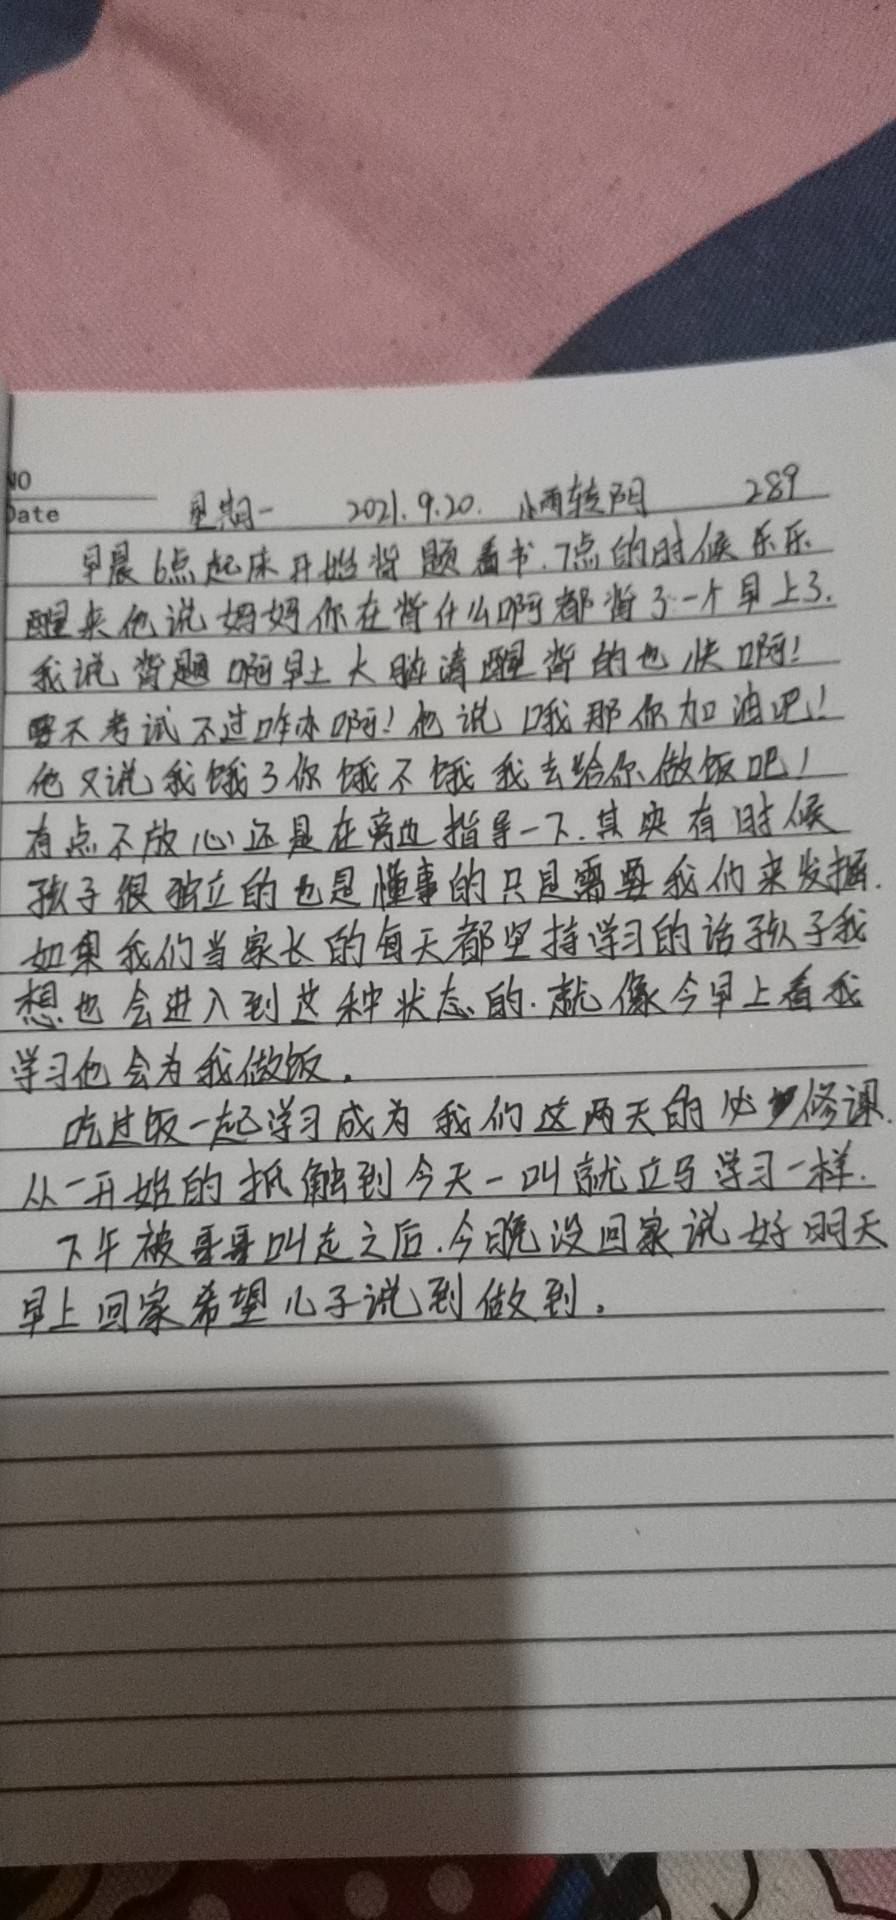 NO
Date
星期一 2021.9.20. 小雨转阴 289
早晨6点起床开始背题看书.7点的时候乐乐
醒来他说妈妈你在背什么啊都背了一个早上了.
我说背题啊早上大脑清醒背的也快啊!
要不考试不过咋办啊!他说哦那你加油吧!
他又说我饿了你饿不饿我去给你做饭吧!
有点不放心还是在旁边指导一下.其实有时候
孩子很独立的也是懂事的只是需要我们来发掘.
如果我们当家长的每天都坚持学习的话孩子我
想也会进入到这种状态的.就像今早上看我
学习他会为我做饭.
吃过饭一起学习成为我们这两天的必修课.
从一开始的抵触到今天一叫就立马学习一样.
下午被哥哥叫走之后.今晚没回家说好明天
早上回家希望儿子说到做到.